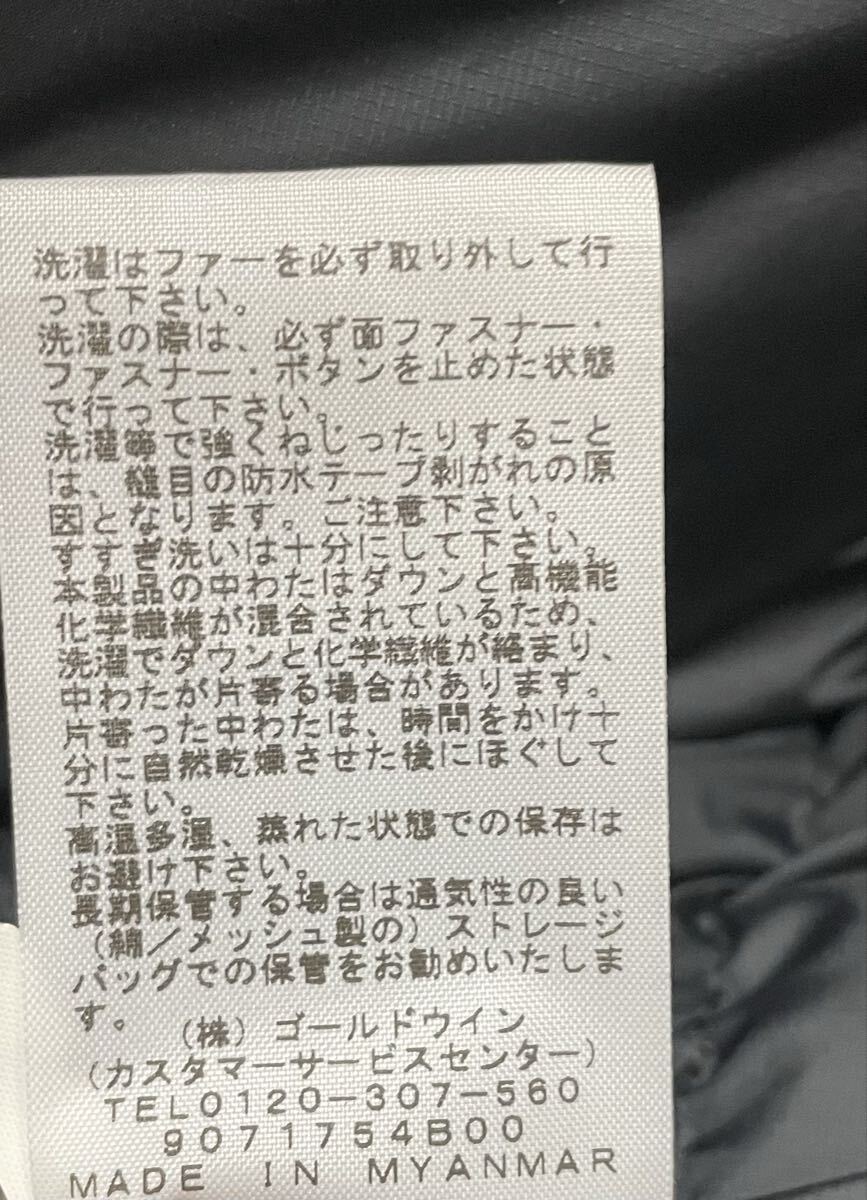 洗濯はファーを必ず取り外して行
って下さい。
洗濯の際は、必ず面ファスナー・
ファスナー・ボタンを止めた状態
で行って下さい。
洗濯等で強くねじったりすること
は、縫目の防水テープ剥がれの原
因となります。ご注意下さい。
すすぎ洗いは十分にして下さい。
本製品の中わたはダウンと高機能
化学繊維が混合されているため、
洗濯でダウンと化学繊維が絡まり、
中わたが片寄る場合があります。
片寄った中わたは、時間をかけ十
分に自然乾燥させた後にほぐして
下さい。
高温多湿、蒸れた状態での保存は
お避け下さい。
長期保管する場合は通気性の良い
(綿/メッシュ製の)ストレージ
バッグでの保管をお勧めいたしま
す。
(株)ゴールドウイン
(カスタマーサービスセンター)
TEL0120-307-560
9071754B00
MADE IN MYANMAR